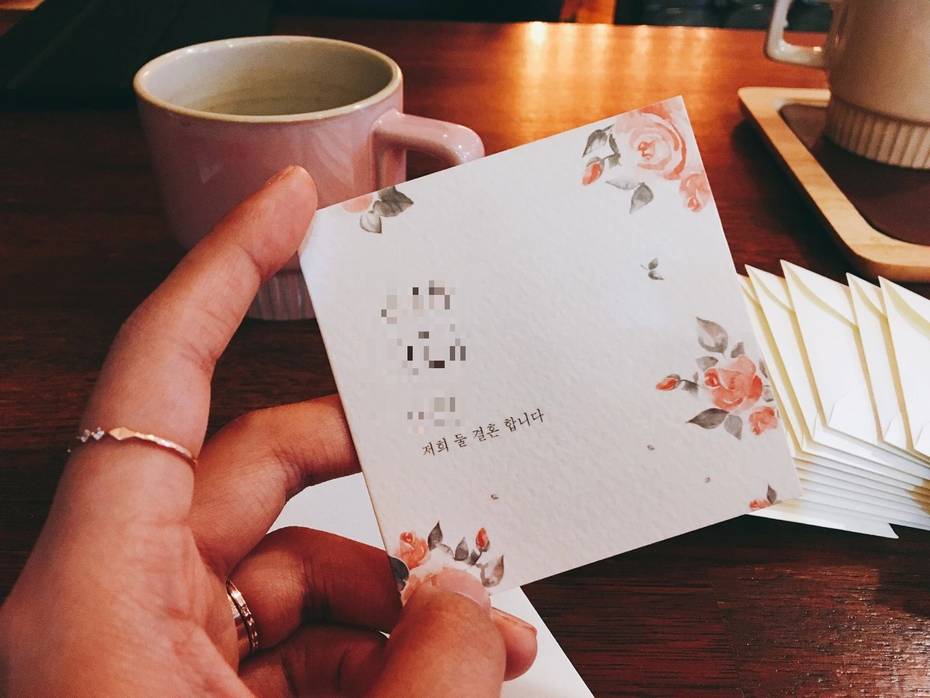 저희 둘 결혼 합니다